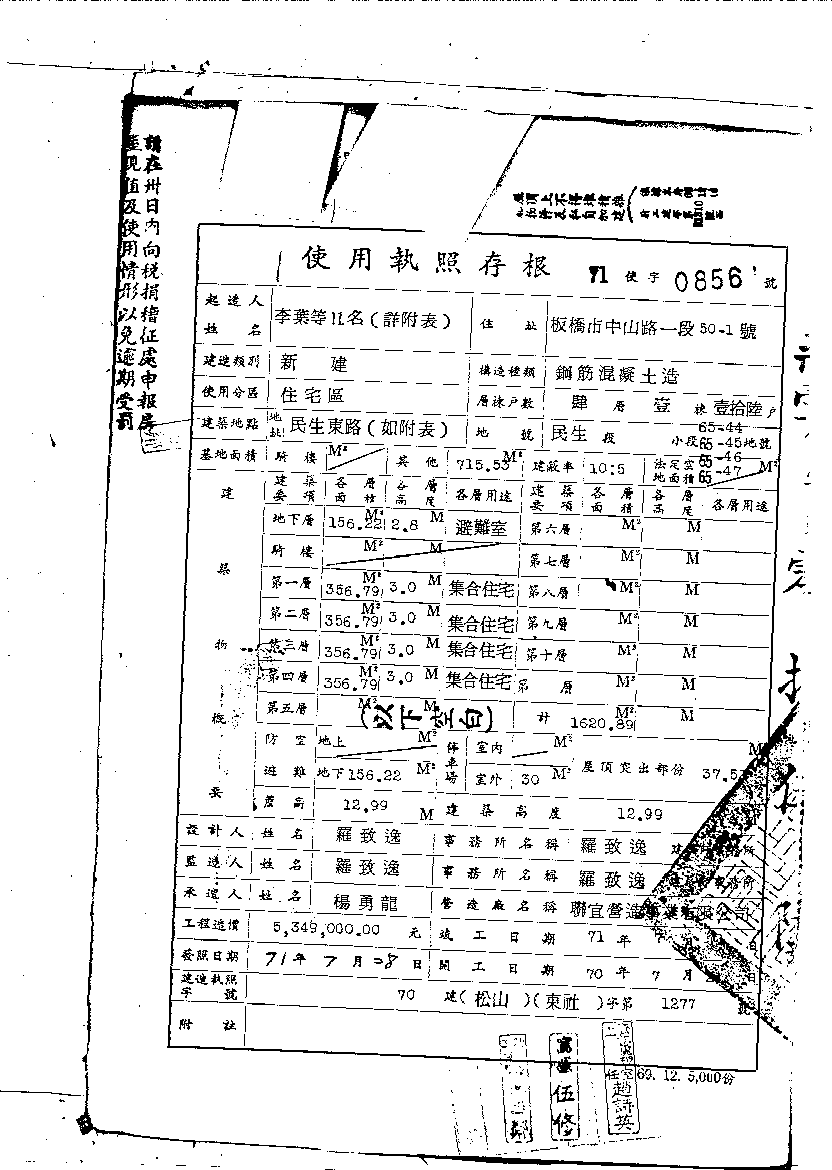 請在卅日內向稅捐稽征處申報房
屋現值及使用情形以免逾期受罰
屋頂上不得搭棚
使用執照存根 71 使字 0856 號
起造人姓名 李葉等11名(詳附表) 住址 板橋市中山路一段50-1號
建造類別 新建 構造種類 鋼筋混凝土造
使用分區 住宅區 層棟戶數 肆層壹棟壹拾陸戶
建築地點 地址 民生東路(如附表) 地號 民生段 小段 65-44 65-45 65-46 65-47 地號
基地面積 騎樓 M² 其他 715.53 M² 建蔽率 10:5 法定空地面積 M²
建築物概要
建築要項 各層面積 各層高度 各層用途 建築要項 各層面積 各層高度 各層用途
地下層 156.22 M² 2.8 M 避難室 第六層 M² M
騎樓 M² M 第七層 M² M
第一層 356.79 M² 3.0 M 集合住宅 第八層 M² M
第二層 356.79 M² 3.0 M 集合住宅 第九層 M² M
第三層 356.79 M² 3.0 M 集合住宅 第十層 M² M
第四層 356.79 M² 3.0 M 集合住宅 第 層 M² M
第五層 M² M (以下空白) 計 1620.89 M² M
防空避難 地上 M² 停車場 室內 M² 屋頂突出部份 37.5 M
地下 156.22 M² 室外 30 M²
簷高 12.99 M 建築高度 12.99
設計人 姓名 羅致逸 事務所名稱 羅致逸
監造人 姓名 羅致逸 事務所名稱 羅致逸
承造人 姓名 楊勇龍 營造廠名稱 聯宜營造事業有限公司
工程造價 5,349,000.00 元 竣工日期 71年 日
發照日期 71年7月28日 開工日期 70年7月 日
建造執照字號 70 建(松山)(東社)字第 1277 號
附註
69. 12. 5,000份
伍修
趙詩英